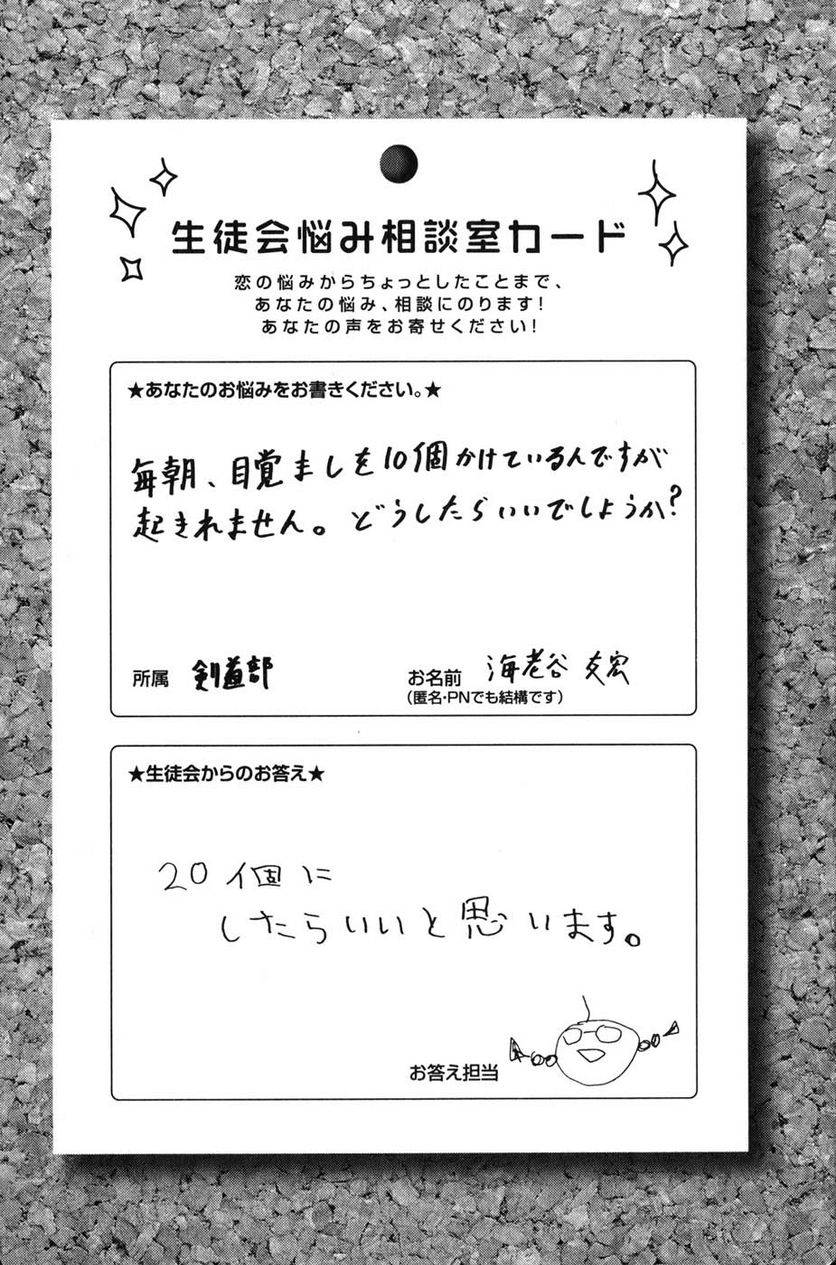 生徒会悩み相談室カード
恋の悩みからちょっとしたことまで、
あなたの悩み、相談にのります!
あなたの声をお寄せください!
★あなたのお悩みをお書きください。★
毎朝、目覚ましを10個かけているんですが
起きれません。どうしたらいいでしょうか?
所属 剣道部
お名前 海老谷 友宏
(匿名・PNでも結構です)
★生徒会からのお答え★
20個に
したらいいと思います。
お答え担当